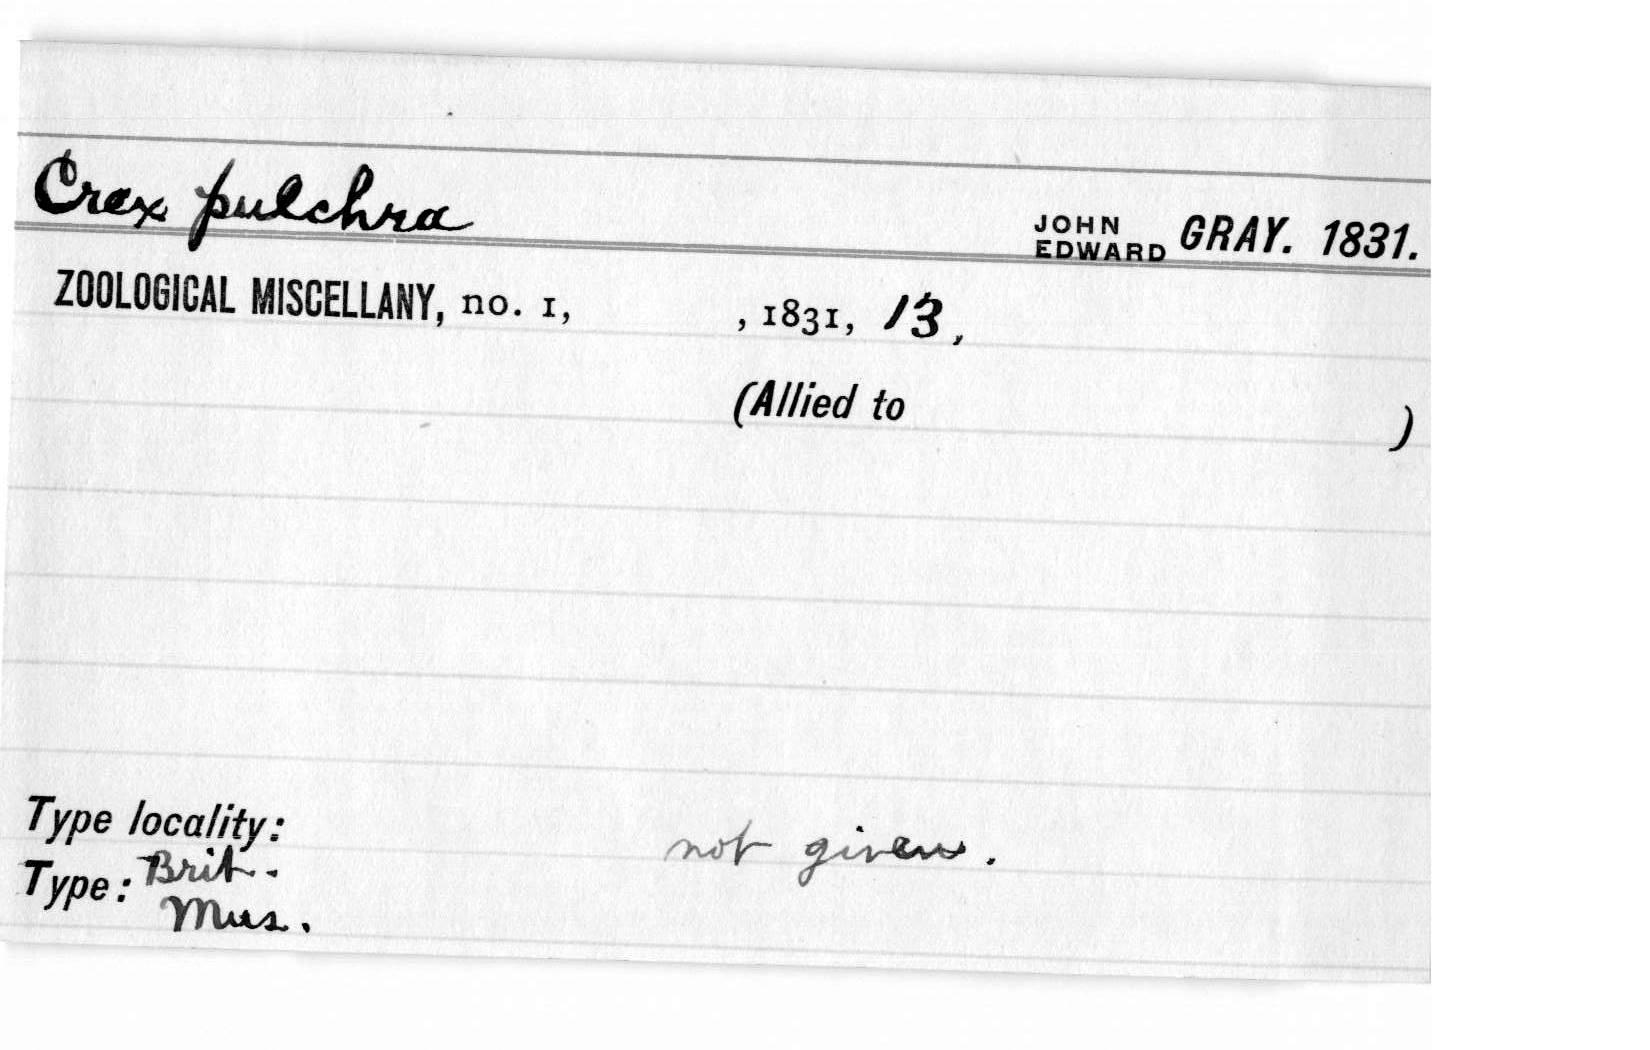 Crex pulchra JOHN EDWARD GRAY. 1831.
ZOOLOGICAL MISCELLANY, no. 1, , 1831, 13,
(Allied to )
Type locality: not given.
Type: Brit. Mus.